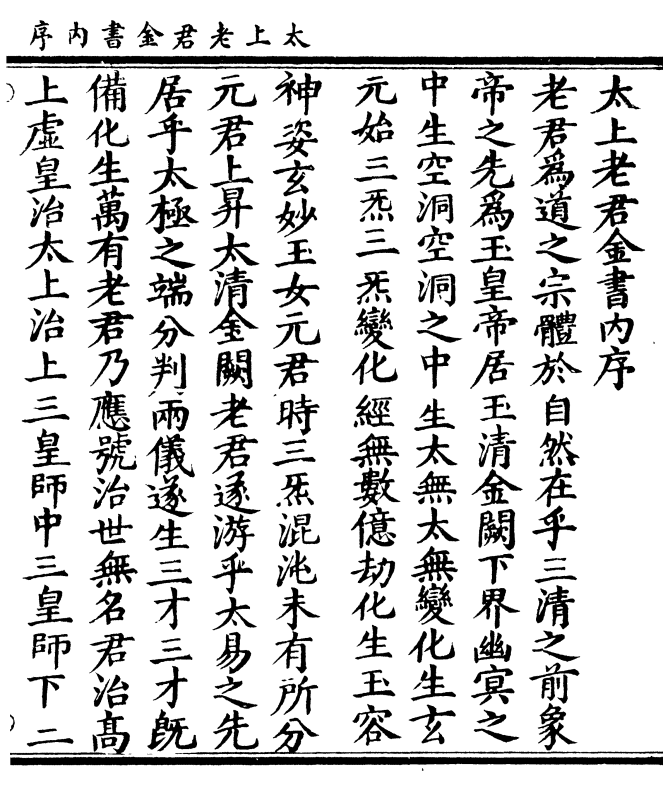 太上老君金書内序
太上老君金書内序
老君為道之宗體於自然在乎三清之前象
帝之先為玉皇帝居玉清金闕下界幽㝠之
中生空洞空洞之中生太無太無變化生玄
元始三炁三炁變化經無數億劫化生玉容
神姿玄妙玉女元君時三炁混沌未有所分
元君上昇太清金闕老君遂游乎太易之先
居乎太極之端分判兩儀遂生三才三才旣
備化生萬有老君乃應號治世無名君治髙
上虛皇治太上治上三皇師中三皇師下二